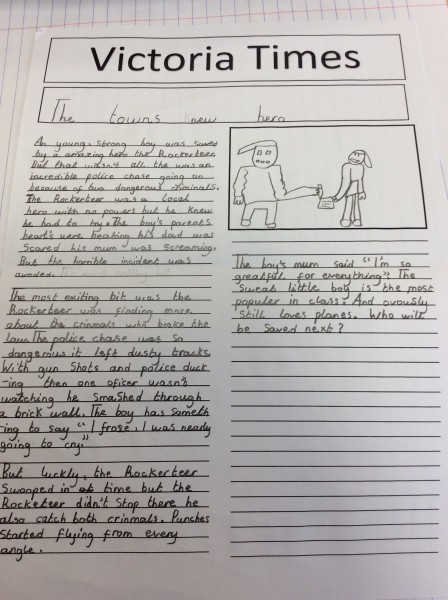 Victoria Times
The towns new hero
An young, strong boy was saved
by a amazing hero the Rockerteer
But that wasn't all the was an
incredible police chase going on
because of two dangerous criminals.
The Rockerteer was a local
hero with no powers but he knew
he had to try. The boy's parents
heart's were beating his dad was
scared his mum was screaming.
But the horrible incident was
avoded.
The most exiting bit was the
Rockerteer was finding more
about the crinmals who broke the
law. The police chase was so
dangerous it left dusty tracks.
With gun shots and police duck
-ing then one oficer wasn't
watching he smashed through
a brick wall. The boy has someth
ing to say "I frose, I was nearly
going to cry"
But luckly, the Rockerteer
Swooped in at time but the
Rocketeer didn't stop there he
also catch both crinmals. Punches
started flying from every
angle.
The boy's mum said "I'm so
greatful for everything". The
sweat little boy is the most
populer in class. And ovously
still loves planes. Who will
be saved next?